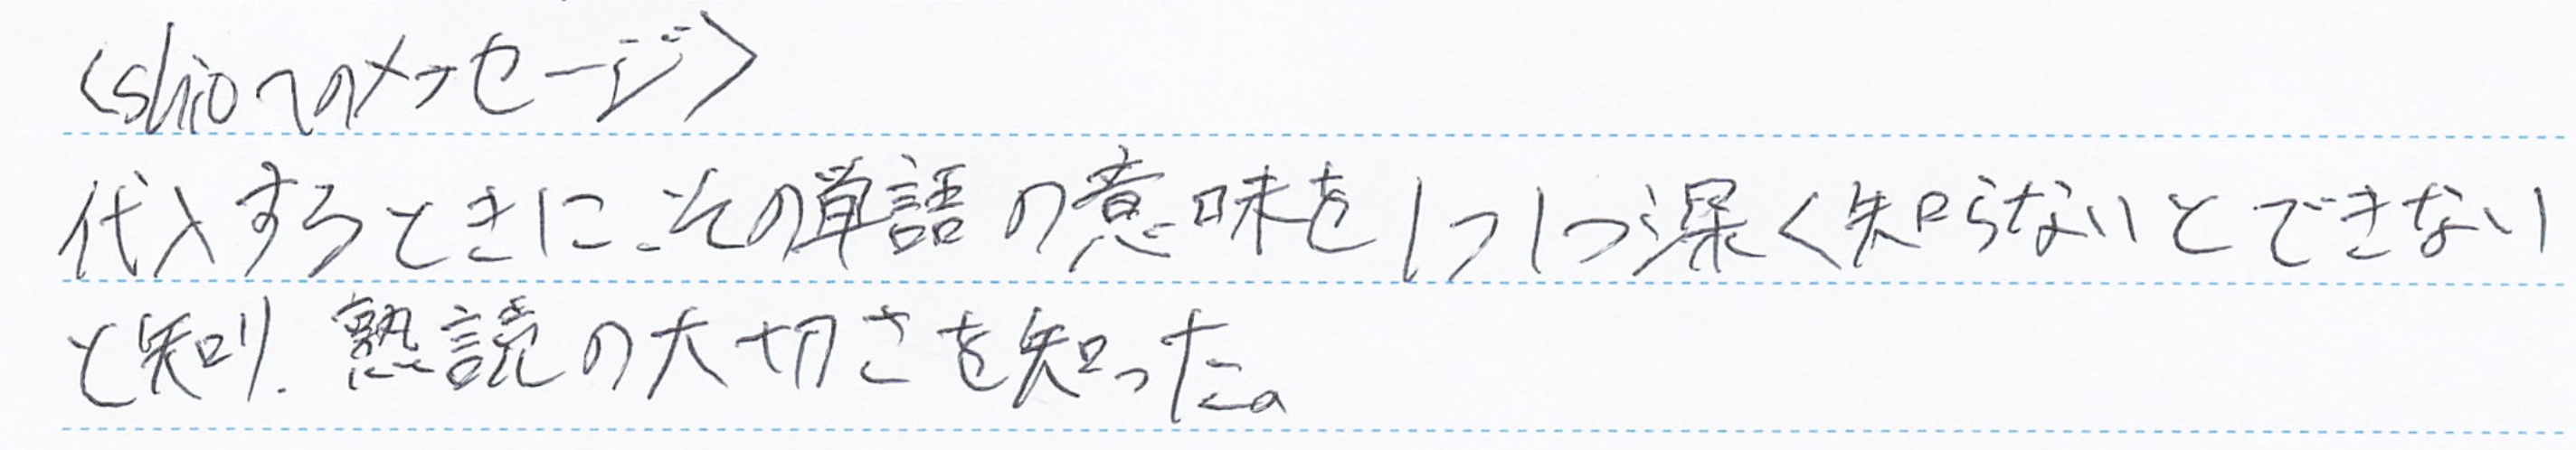 <shioへのメッセージ>
代入するときに、その単語の意味を1つ1つ深く知らないとできない
と知り、熟読の大切さを知った。